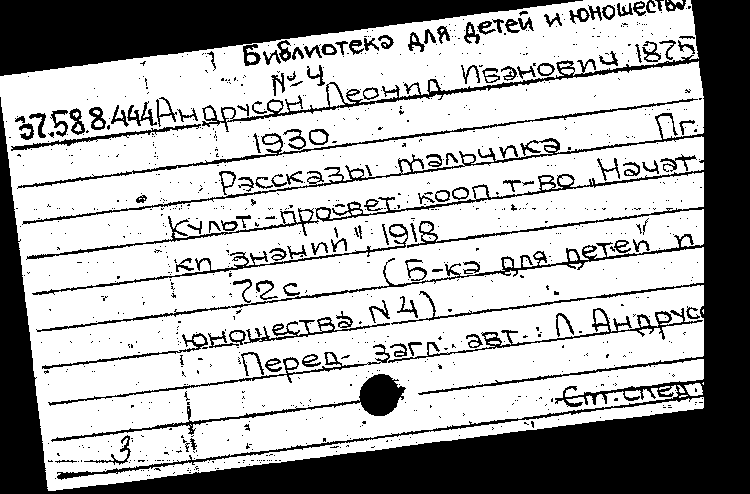 Библиотека для детей и юношества.
№ 4
37.58.8.444 Андрусон, Леонид Иванович, 1875
1930.
Рассказы мальчика. Пг.
Культ.-просвет. кооп. т-во „Начат-
ки знаний", 1918
72 с (Б-ка для детей и
юношества. N 4).
Перед загл. авт.: Л. Андрусо
См. след.
3